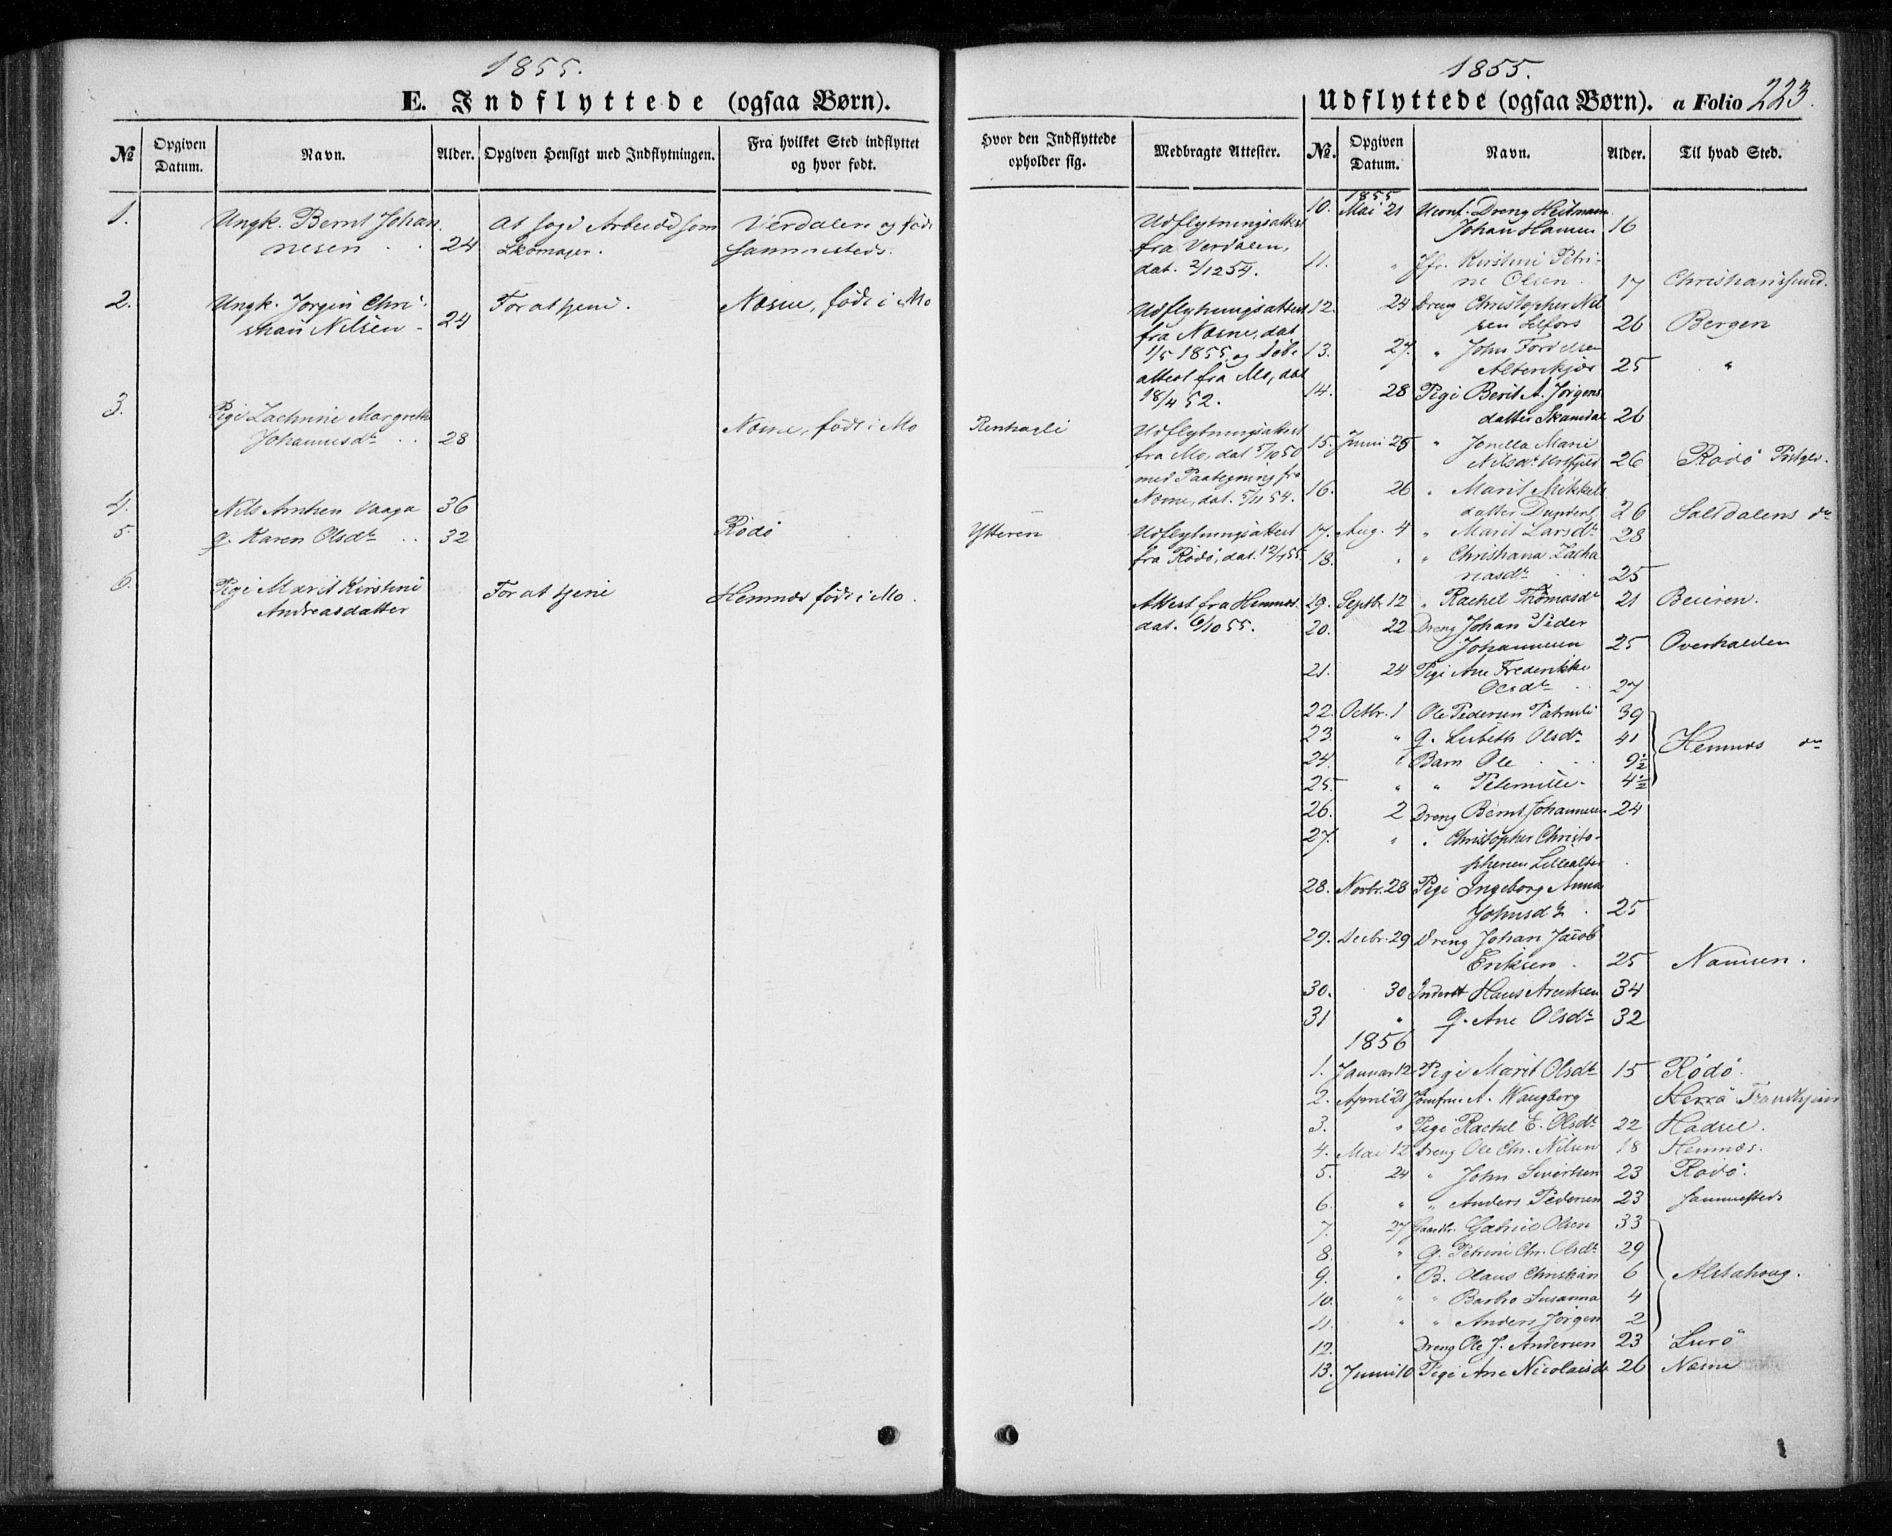 1855.
E. Indflyttede (ogsaa Børn).
№
Opgiven Datum.
Navn.
Alder.
Opgiven Hensigt med Indflytningen.
Fra hvilket Sted indflyttet og hvor født.
1. Ungk. Bernt Johan
nesen 24 At søge Arbeide som Skomager. Verdalen og født sammesteds.
2. Ungk. Jørgen Chri
stian Nilsen 24 For at tjene. Næsne, født i Mo
3. Pige Zachrine Margrethe
Johannesdr 28 Næsne, født i Mo
4. Nils Arntsen Vaaga 36
5. g. Karen Olsdr 32 Rödö
6. Pige Marit Kirstine
Andreasdatter For at tjene Hemnæs født i Mo.
1855.
Udflyttede (ogsaa Børn). a Folio 223.
Hvor den Indflyttede opholder sig.
Medbragte Attester.
№.
Opgiven Datum.
Navn.
Alder.
Til hvad Sted.
Udflytningsattest
fra Verdalen,
dat. 2/12 54.
Udflytningsattest
fra Næsne, dat
1/5 1855, og Døbe
attest fra Mo, dat
18/4 52.
Renhagli
Udflytningsattest
fra Mo, dat 5/10 50
med Paategning fra
Næsne, dat. 5/11 54.
Ytteren
Udflytningsattest
fra Rödö, dat. 12/4 55.
Attest fra Hemnæs
dat. 6/10 55.
1855
10. Mai 21 Uconf. Dreng Heitmann
Johan Hansen 16
11. " Jfr. Kirstine Petri-
ne Olsen 17 Christiansund.
12. 24 Dreng Christopher Nil
sen Selfors 26 Bergen
13. 27. " John
25 "
14. 28 Pige Berit A. Jørgens
datter 26
15. Juni 25 " Jonilla Marie
Nilsdr 26 Rödö Præstgld.
16. 26 " Marit Mikkels
datter Dunderl. 26 Saltdalens do
17. Aug. 4 " Marit Larsdr 28
18. " " Christiana Zacha
riasdr 25
19. Septbr. 12 " Rachel Thomasdr 21 Beieren.
20. 22 Dreng Johan Peder
Johannesen 25 Overhalden
21. 24 Pige Ane Frederikke
Olsdr 27
22. Octbr. 1 Ole Pedersen 39
23. " g. Lisbeth Olsdr 41 Hemnæs do
24. " Barn Ole 9½
25. " " Peternille 4½
26. 2 Dreng Bernt Johannesen 24
27. " " Christopher Christo-
phersen Lillealter
28. Novbr. 28 Pige Ingeborg Anna
Johnsdr 25
29. Decbr. 29 Dreng Johan Jacob
Eriksen 25 Namsen.
30. 30 Inderst Hans Arentsen 34
31 " g. Ane Olsdr 32
1856
1. Januar 12 Pige Marit Olsdr 15 Rödö.
2. April 21 Jomfrue A. Wangberg Herrö
3. " Pige Rachel E. Olsdr 22 Hadsel.
4. Mai 12 Dreng Ole Chr. Nilsen 18 Hemnæs.
5. 24 " John Sivertsen 23 Rödö.
6. " " Anders Pedersen 23 sammesteds
7. 27 Gaardbr. Gabriel Olsen 33
8. " g. Petrine Chr. Olsdr 29
9. " B. Olaus Christian 6 Alstahoug.
10. " " Barbro Susanna 4
11. " " Anders Jørgen 2
12. Dreng Ole J. Andersen 23 Lurö
13. Juni 10 Pige Ane Nicolaisdr 26 Næsne